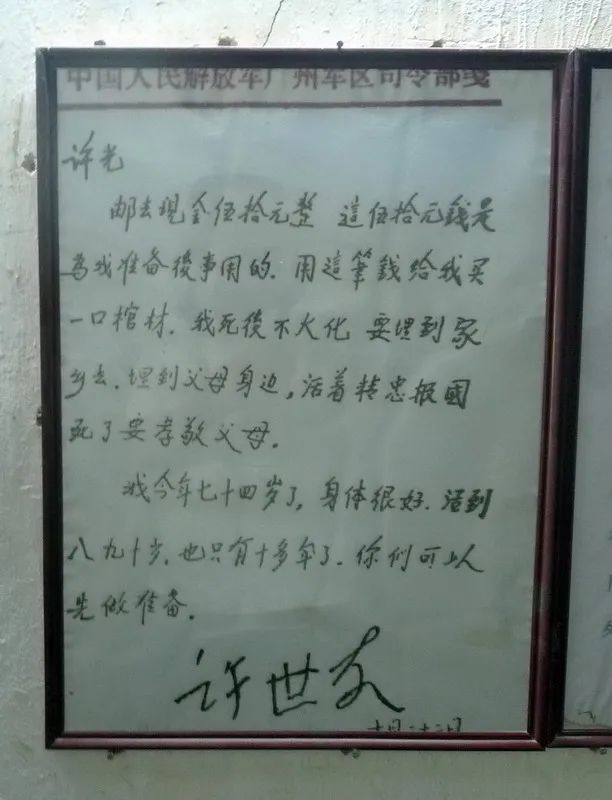 中国人民解放军广州军区司令部笺
许光
邮去现金伍拾元整 這伍拾元錢是
为我准备後事用的. 用這筆錢给我买
一口棺材. 我死後不火化 要埋到家
乡去. 埋到父母身边, 活着精忠报國
死了要孝敬父母.
我今年七十四岁了, 身体很好. 活到
八九十岁. 也只有十多年了. 你们可以
先做准备.
许世友